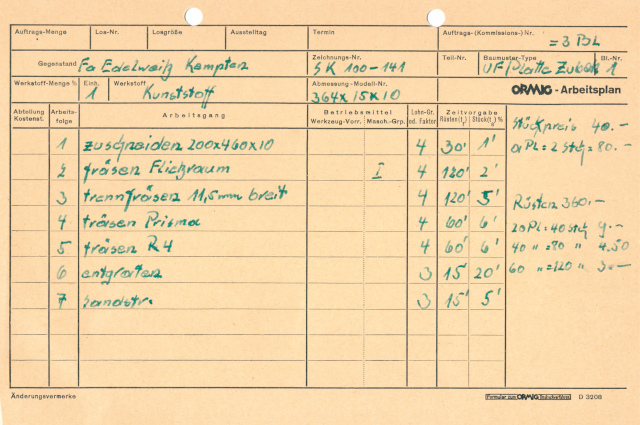 Auftrags-Menge Los-Nr. Losgröße Ausstelltag Termin Auftrags-(Kommissions-) Nr.
= 3 BL
Gegenstand Fa Edelweiß Kempten Zeichnungs-Nr. SK 100-141 Teil-Nr. Baumuster-Type UF/Platte Bl.-Nr. 1
Werkstoff-Menge % Einh. 1 Werkstoff Kunststoff Abmessung-Modell-Nr. 364 x 15 x 10 ORMIG - Arbeitsplan
Abteilung Kostenst. Arbeits-folge Arbeitsgang Betriebsmittel Werkzeug-Vorr. Masch.-Grp. Lohn-Gr. od. Faktor Zeitvorgabe Rüsten (tr) Stück (te)
Stückpreis 40.-
1 zuschneiden 200x460x10 4 30' 1' a Pl. = 2 Stck = 80.-
2 fräsen Flichraum I 4 120' 2'
3 trennfräsen 11,5 mm breit 4 120' 5' Rüsten 360.-
4 fräsen Prisma 4 60' 6' 20 Pl = 40 Stck 9.-
5 fräsen R4 4 60' 6' 40 " = 80 " 4.50
6 entgraten 3 15' 20' 60 " = 120 " 3.-
7 sandstr. 3 15' 5'
Änderungsvermerke Formular zum ORMIG D 3208